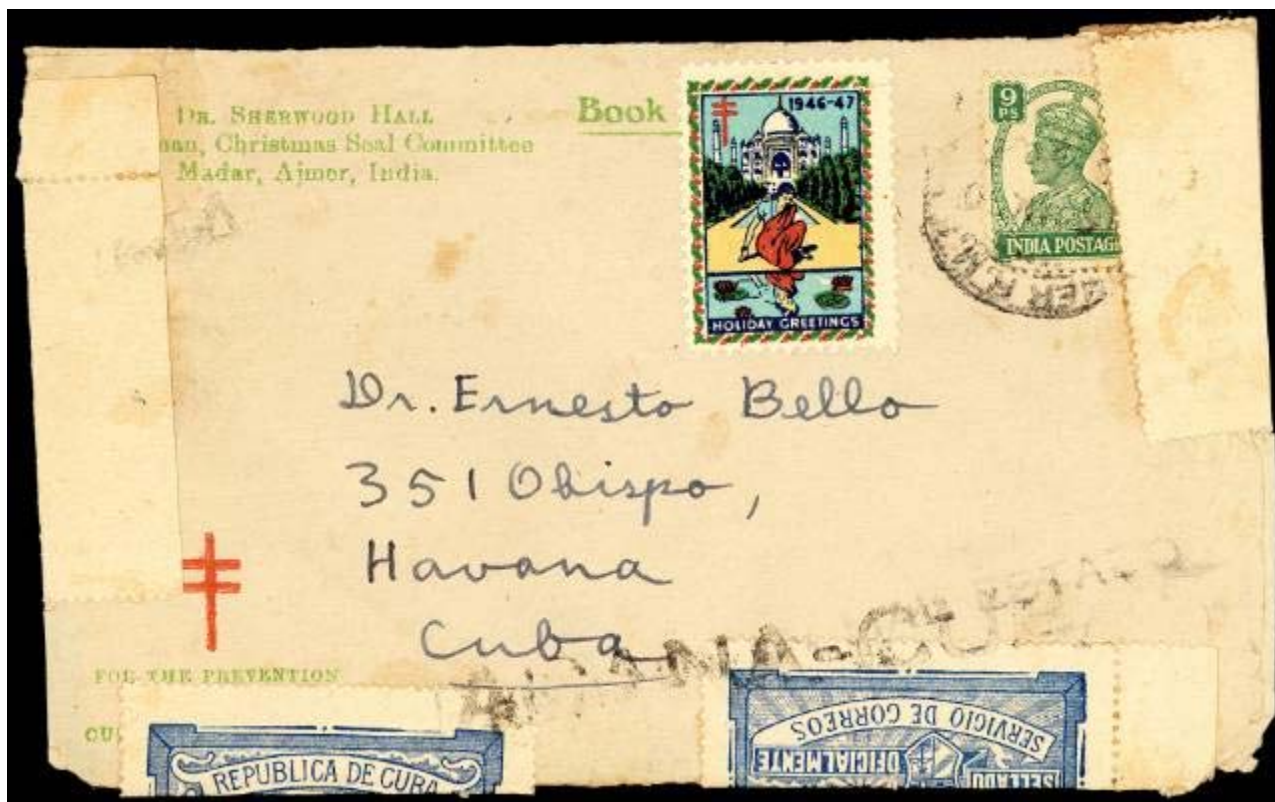 Dr. Sherwood Hall
Christmas Seal Committee
Madar, Ajmer, India.
Book
1946-47
HOLIDAY GREETINGS
9
PS
INDIA POSTAG
Dr. Ernesto Bello
351 Obispo,
Havana
Cuba
FOR THE PREVENTION
CU
REPUBLICA DE CUBA
SERVICIO DE CORREOS
SELLADO OFICIALMENTE